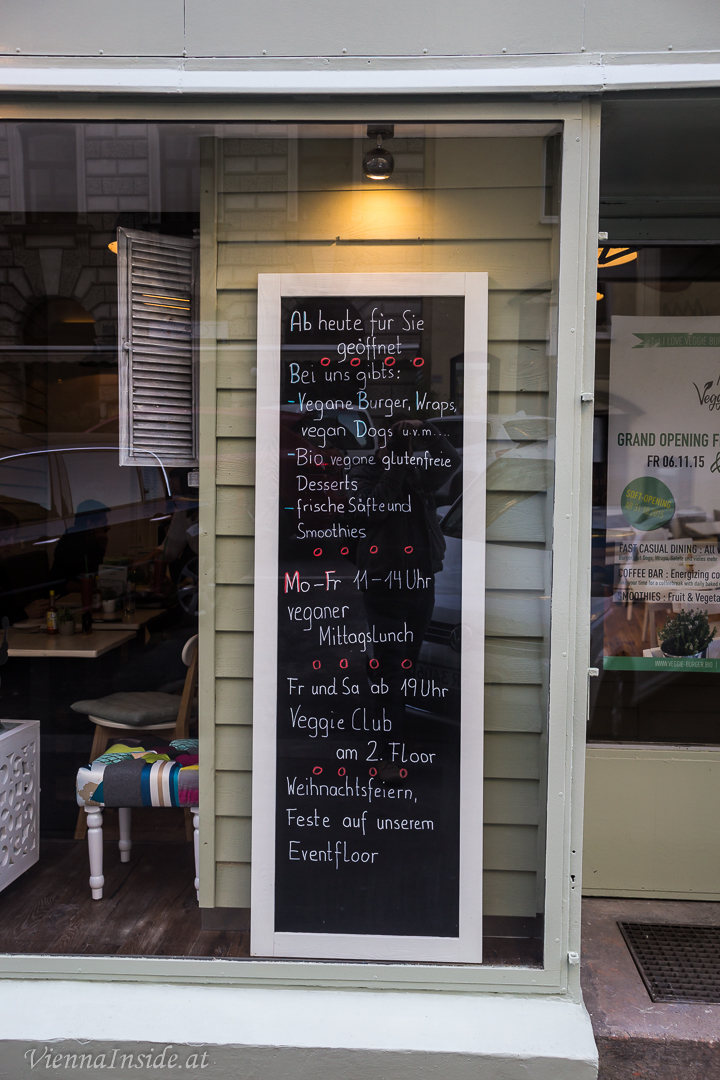 Ab heute für Sie
geöffnet
Bei uns gibts:
- Vegane Burger, Wraps,
vegan Dogs u.v.m....
- Bio vegane glutenfreie
Desserts
- frische Säfte und
Smoothies
Mo-Fr 11-14 Uhr
veganer
Mittagslunch
Fr und Sa ab 19 Uhr
Veggie Club
am 2. Floor
Weihnachtsfeiern,
Feste auf unserem
Eventfloor
LOVE VEGGIE
Vegg
GRAND OPENING F
FR 06.11.15
&
SOFT-OPENING
FAST CASUAL DINING : All
COFFEE BAR : Energizing co
SMOOTHIES : Fruit & Vegeta
WWW.VEGGIE-BURGER.BIO
ViennaInside.at